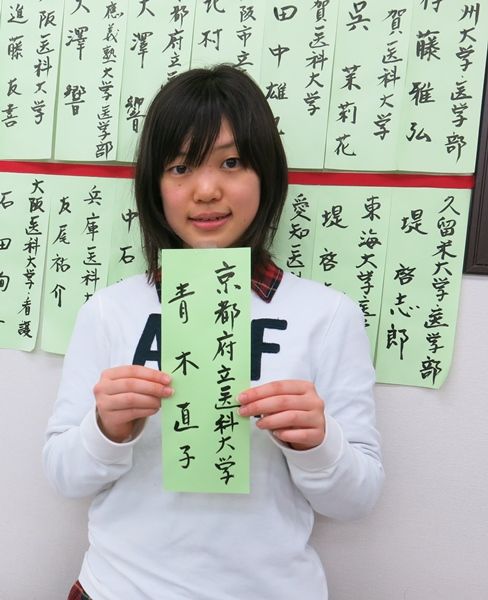 州大学・医学部
藤雅弘
賀医科大学
呉茉莉花
賀医科大学
田中雄
阪市立
北村
都府立
大澤響
應義塾大学・医学部
大澤響
阪医科大学
進藤友喜
久留米大学・医学部
堤啓志郎
東海大学・医
堤啓
愛知医
中石
兵庫医科
友尾祐介
大阪医科大学・看護
石田絢
京都府立医科大学
青木直子
A F